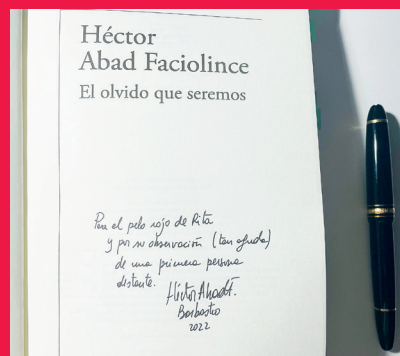 Héctor
Abad Faciolince
El olvido que seremos
Para el pelo rojo de Rita
y por su observación (tan aguda)
de una primera persona
distante.
Héctor Abad F.
Barbastro
2022